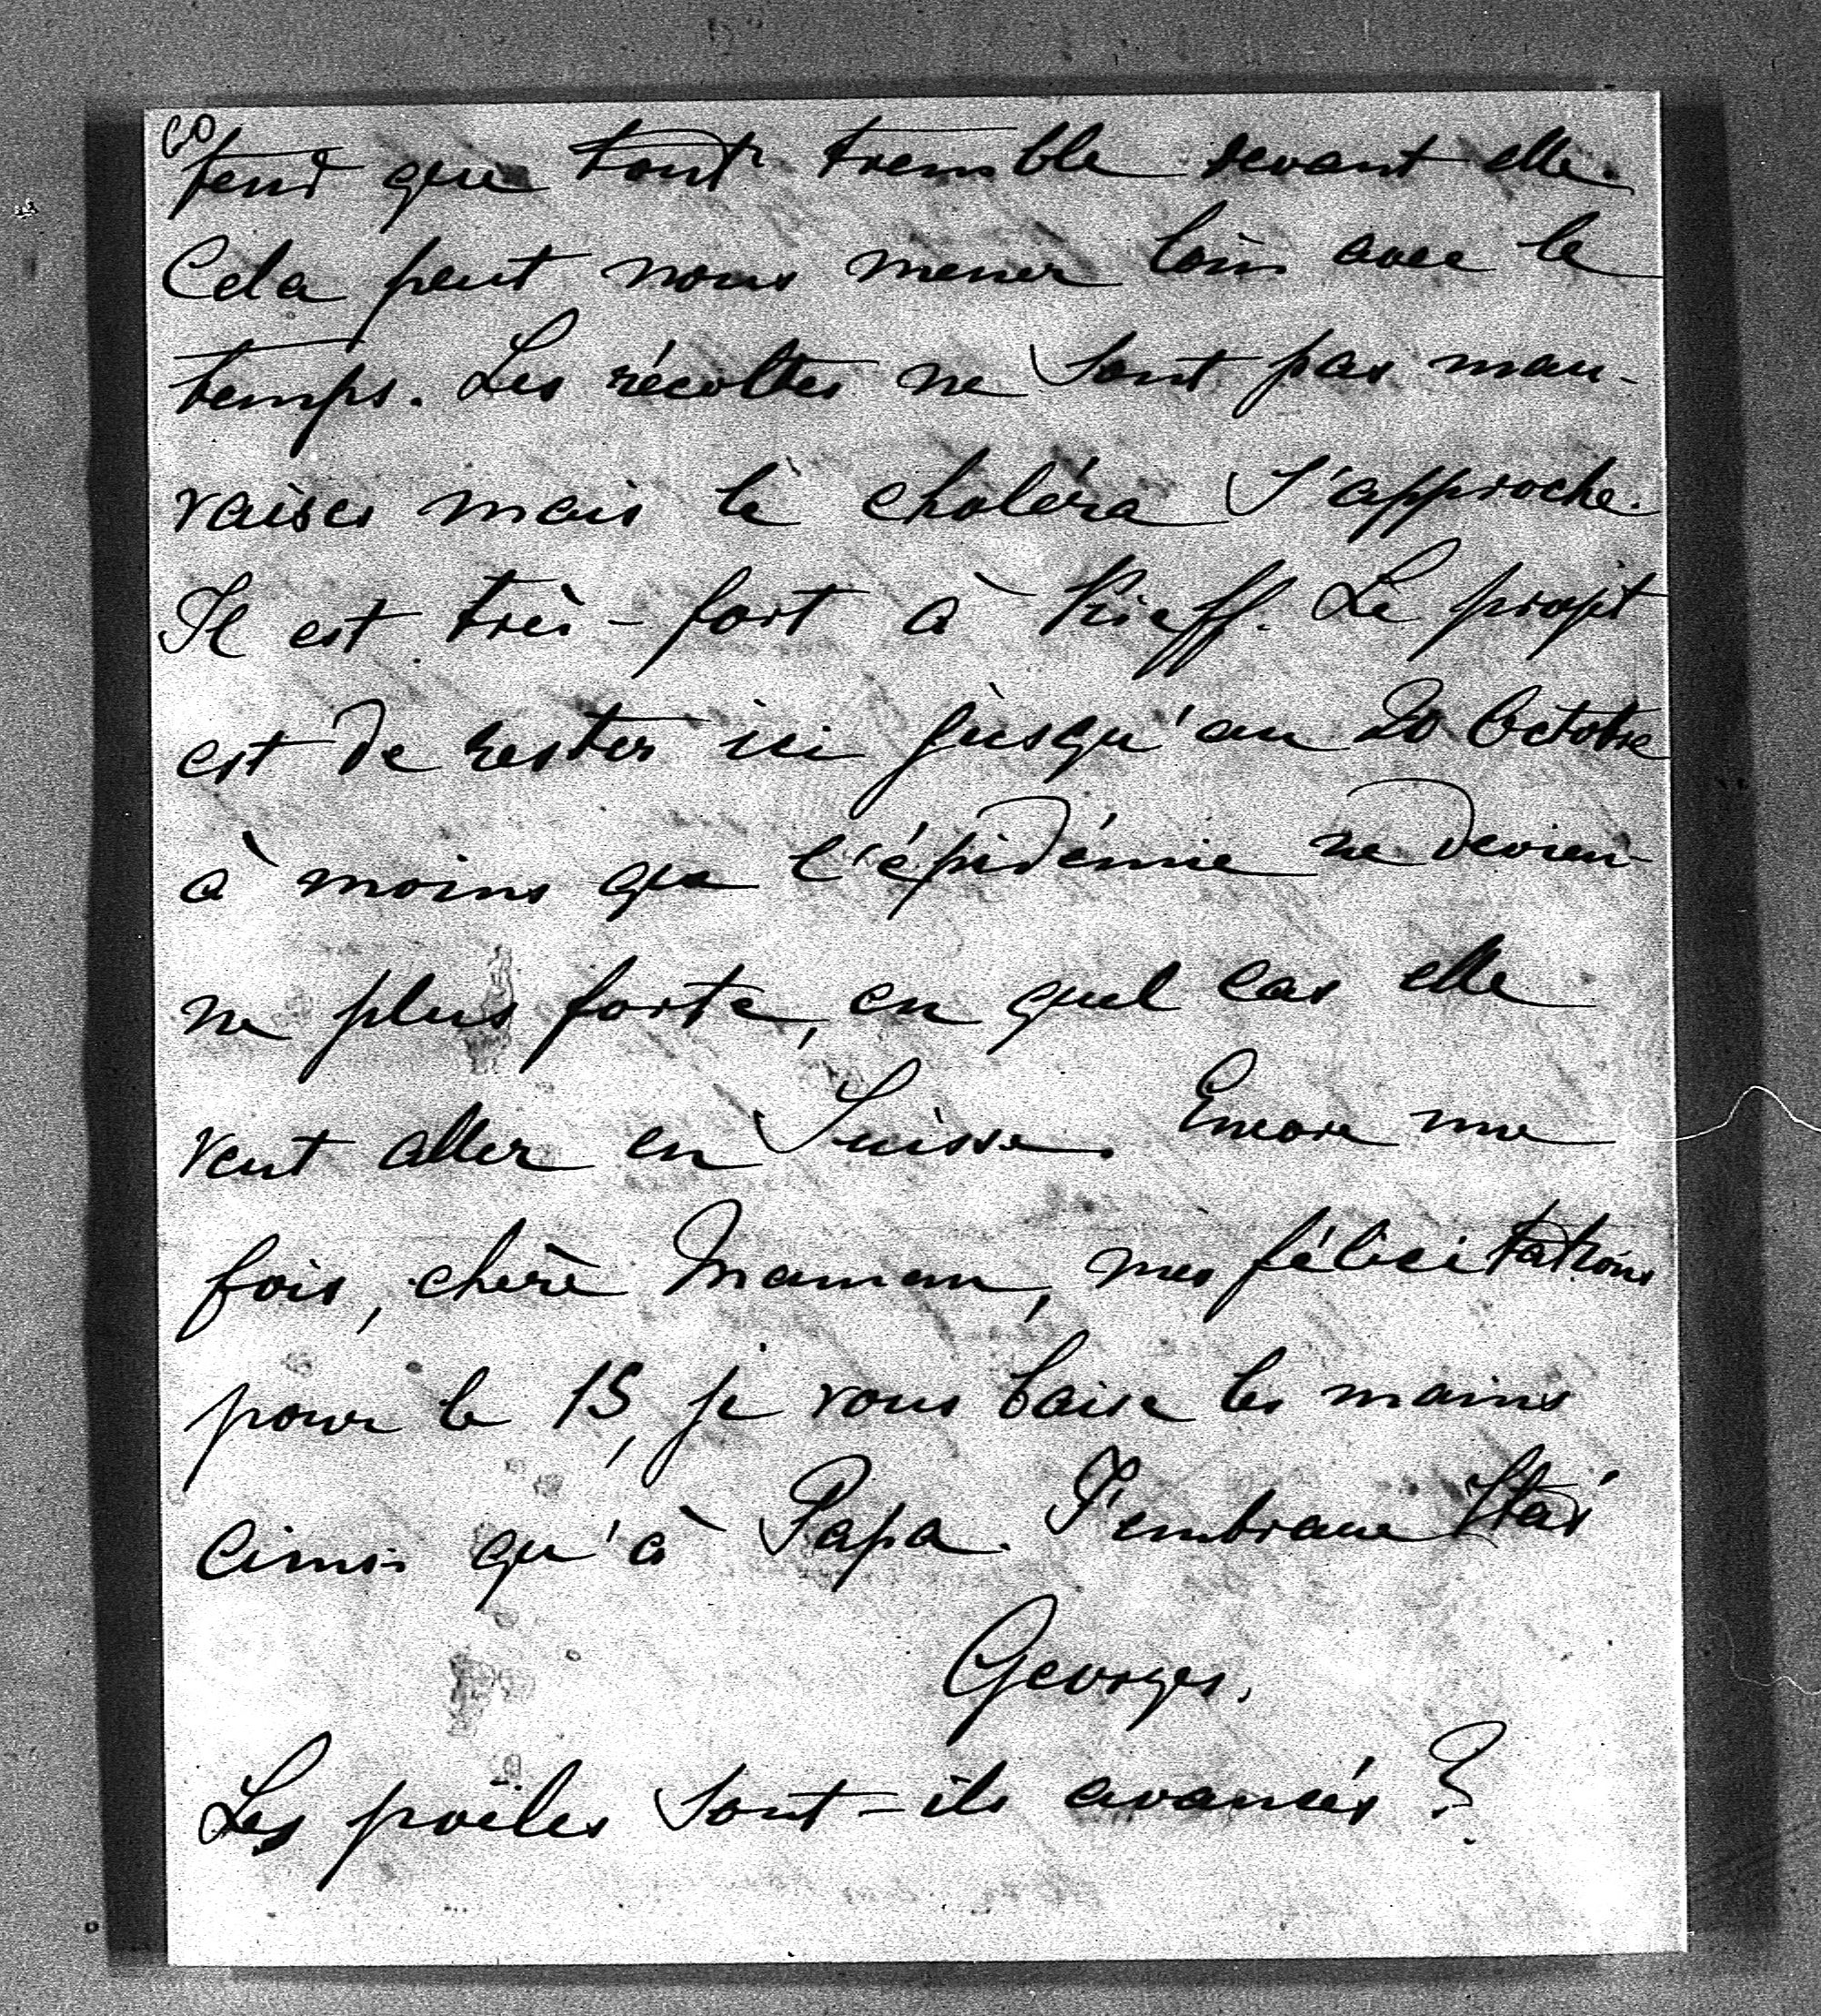 60
tend que tout tremble devant elle.
Cela peut nous mener loin avec le
temps. Les récoltes ne sont pas mau-
vaises mais le choléra s'approche.
Il est très-fort à Kieff. Le projet
est de rester ici jusqu'au 20 Octobre
à moins que l'épidémie ne devien-
ne plus forte, en quel cas elle
veut aller en Suisse. Encore une
fois, chère Maman, mes félicitations
pour le 15, je vous baise les mains
ainsi qu'à Papa. J'embrasse Stas
Georges.
Les poëles sont-ils avancés ?